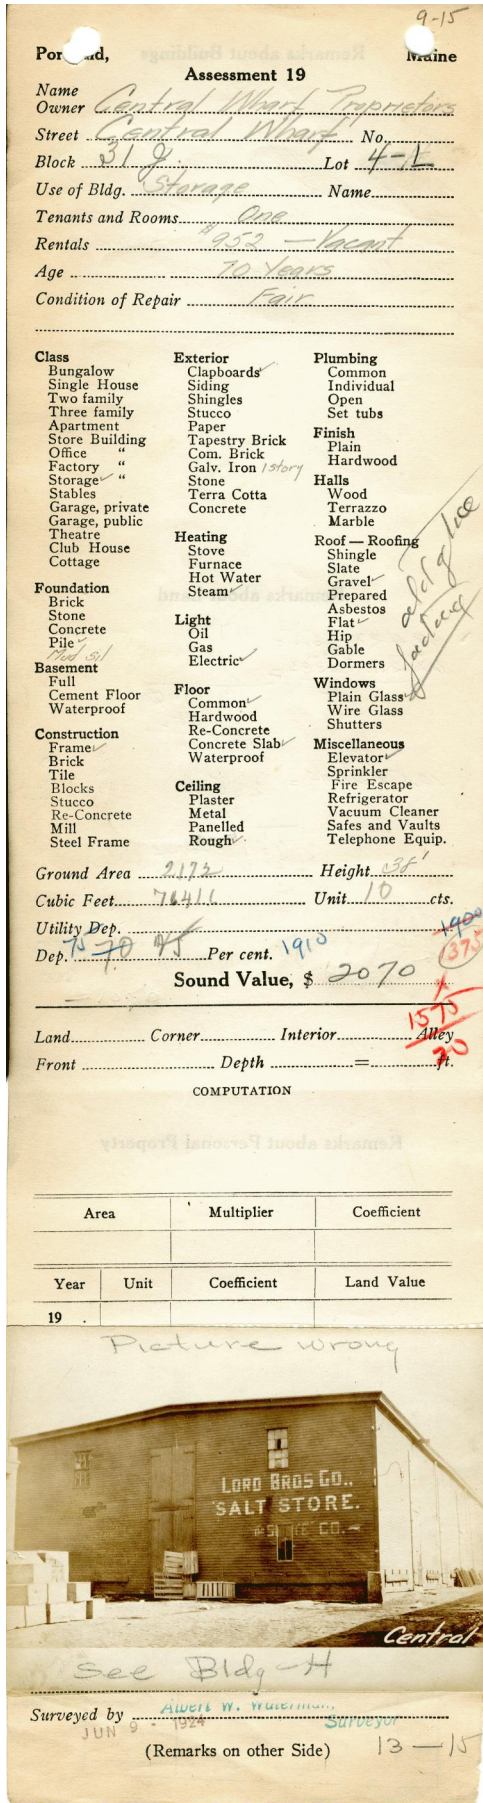 9-15
Portland, Maine
Assessment 19
Name
Owner Central Wharf Proprietors
Street Central Wharf No.
Block 31 J. Lot 4-L
Use of Bldg. Storage Name
Tenants and Rooms One
Rentals $952 — Vacant
Age 70 Years
Condition of Repair Fair
Class
Bungalow
Single House
Two family
Three family
Apartment
Store Building
Office "
Factory "
Storage ✓ "
Stables
Garage, private
Garage, public
Theatre
Club House
Cottage
Foundation
Brick
Stone
Concrete
Pile ✓
Mud sil
Basement
Full
Cement Floor
Waterproof
Construction
Frame ✓
Brick
Tile
Blocks
Stucco
Re-Concrete
Mill
Steel Frame
Exterior
Clapboards ✓
Siding
Shingles
Stucco
Paper
Tapestry Brick
Com. Brick
Galv. Iron 1 story
Stone
Terra Cotta
Concrete
Heating
Stove
Furnace
Hot Water
Steam ✓
Light
Oil
Gas
Electric ✓
Floor
Common ✓
Hardwood
Re-Concrete
Concrete Slab ✓
Waterproof
Ceiling
Plaster
Metal
Panelled
Rough ✓
Plumbing
Common
Individual
Open
Set tubs
Finish
Plain
Hardwood
Halls
Wood
Terrazzo
Marble
Roof — Roofing
Shingle
Slate
Gravel ✓
Prepared
Asbestos
Flat ✓
Hip
Gable
Dormers
Windows
Plain Glass ✓
Wire Glass
Shutters
Miscellaneous
Elevator ✓
Sprinkler
Fire Escape
Refrigerator
Vacuum Cleaner
Safes and Vaults
Telephone Equip.
Ground Area 2173 Height 38'
Cubic Feet 76411 Unit 10 cts.
Utility Dep. 1900
Dep. 75 70 75 Per cent. 1910 1375
Sound Value, $ 2070
1575
Land Corner Interior Alley
20
Front Depth = ft.
COMPUTATION
Area Multiplier Coefficient
Year Unit Coefficient Land Value
19 .
Picture wrong
LORD BROS CO.,
SALT STORE.
CO.
Central
See Bldg-H
Surveyed by Albert W. Waterman,
Surveyor
JUN 9 - 1924
(Remarks on other Side) 13-15